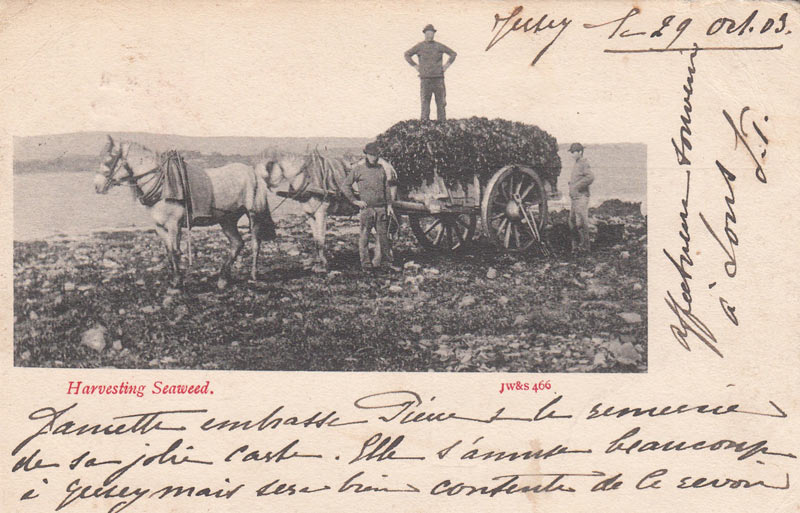 Jersey le 29 Oct. 03.
affectueux souvenir
à tous
Harvesting Seaweed.
JW&S 466
embrasse Pierre & le remercie
de sa jolie carte. Elle s'amuse beaucoup
à Jersey mais sera bien contente de le revoir